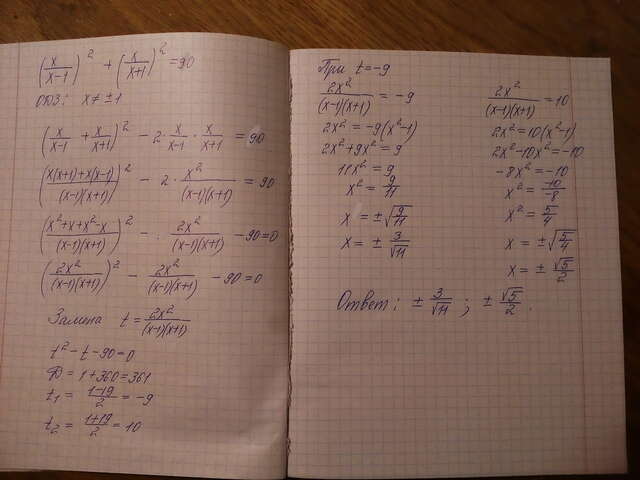 (x/(x-1))² + (x/(x+1))² = 90
ОДЗ: x ≠ ±1
(x/(x-1) + x/(x+1))² - 2·x/(x-1)·x/(x+1) = 90
((x(x+1)+x(x-1))/((x-1)(x+1)))² - 2·x²/((x-1)(x+1)) = 90
((x²+x+x²-x)/((x-1)(x+1)))² - 2x²/((x-1)(x+1)) - 90=0
(2x²/((x-1)(x+1)))² - 2x²/((x-1)(x+1)) - 90=0
Замена t = 2x²/((x-1)(x+1))
t²-t-90=0
D=1+360=361
t₁ = (1-19)/2 = -9
t₂ = (1+19)/2 = 10
При t=-9
2x²/((x-1)(x+1)) = -9
2x² = -9(x²-1)
2x²+9x² = 9
11x² = 9
x² = 9/11
x = ±√(9/11)
x = ± 3/√11
2x²/((x-1)(x+1)) = 10
2x²=10(x²-1)
2x²-10x²=-10
-8x²=-10
x² = -10/-8
x² = 5/4
x = ±√(5/4)
x = ± √5/2
Ответ: ± 3/√11 ; ± √5/2 .